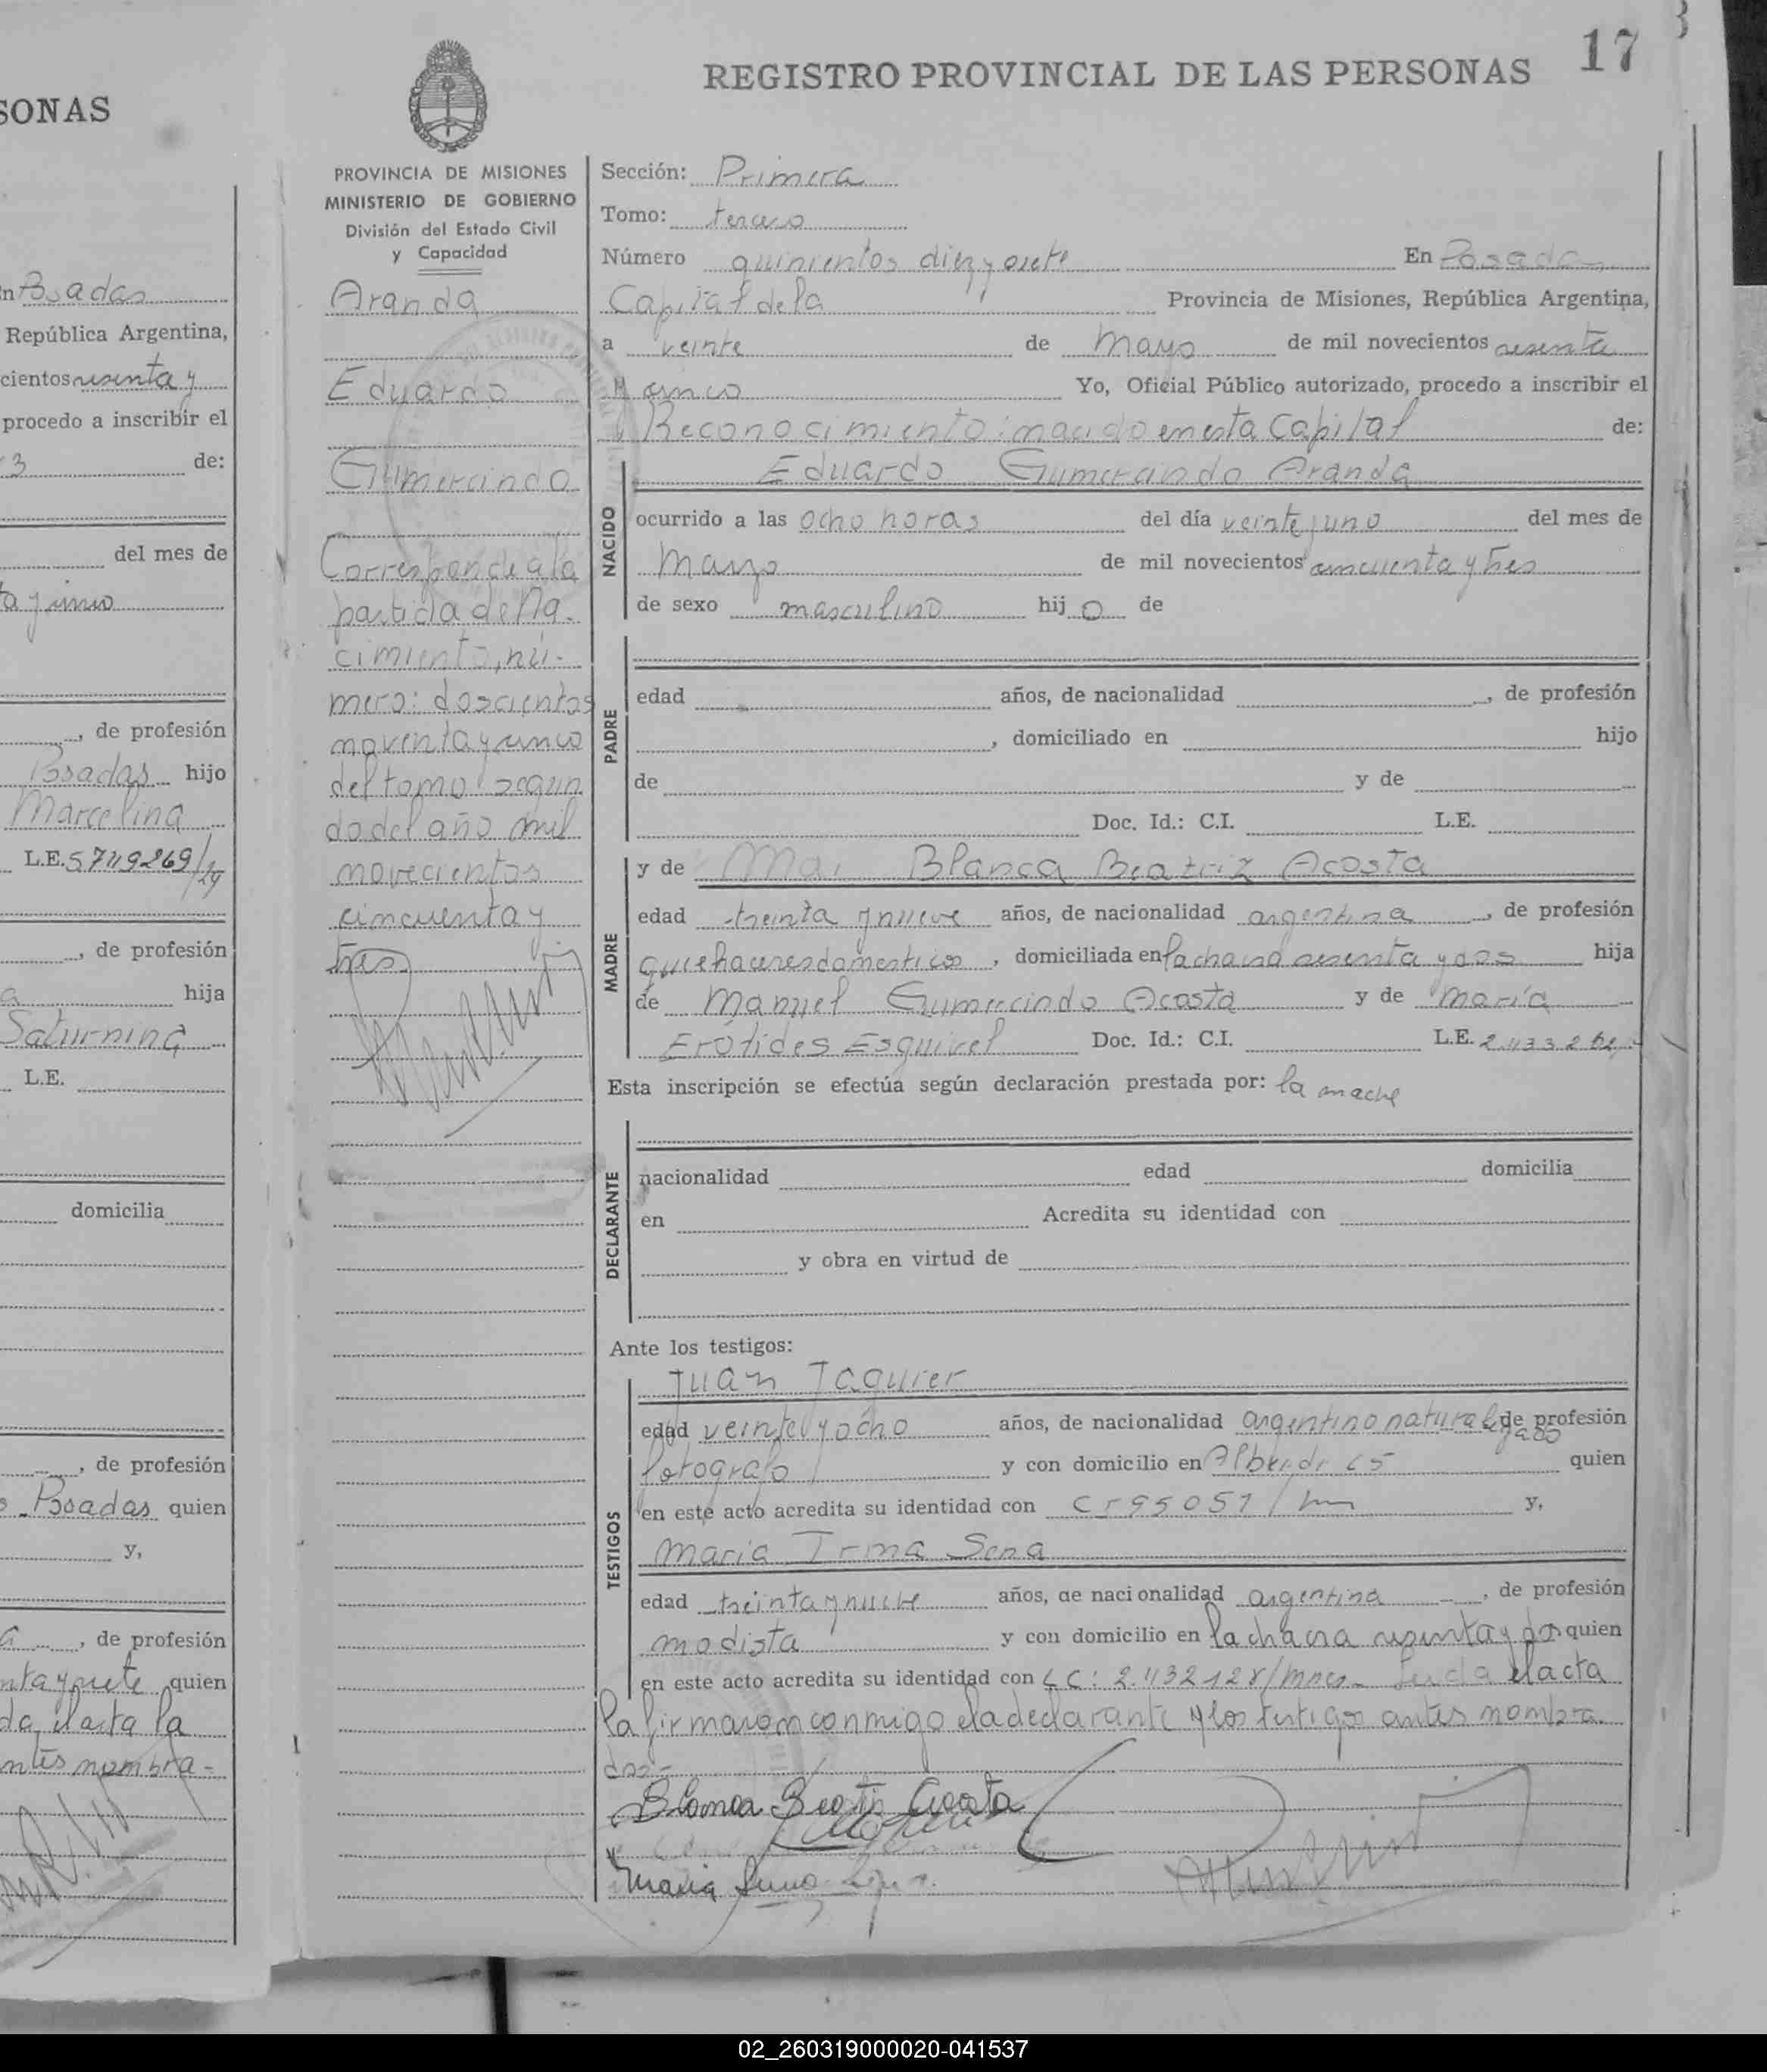 SONAS
n Posadas
República Argentina,
cientos sesenta y
procedo a inscribir el
3 de:
del mes de
ta y cinco
, de profesión
Posadas hijo
Marcelina
L.E. 5749269/
, de profesión
a hija
Saturnina
L.E.
domicilia
, de profesión
Posadas quien
y,
a , de profesión
nta y siete quien
da el acta la
ntes nombra-
17
REGISTRO PROVINCIAL DE LAS PERSONAS
PROVINCIA DE MISIONES
MINISTERIO DE GOBIERNO
División del Estado Civil
y Capacidad
Aranda
Eduardo
Gumercindo
Corresponde a la
partida de Na-
cimiento, nú-
mero: doscientos
noventa y cinco
del tomo segun
do del año mil
novecientos
cincuenta y
tres
Sección: Primera
Tomo: tercero
Número quinientos diez y siete En Posadas
Capital de la Provincia de Misiones, República Argentina,
a veinte de Mayo de mil novecientos sesenta
y cinco Yo, Oficial Público autorizado, procedo a inscribir el
Reconocimiento: nacido en esta Capital de:
Eduardo Gumercindo Aranda
NACIDO
ocurrido a las ocho horas del día veinte y uno del mes de
Marzo de mil novecientos cincuenta y tres
de sexo masculino hij o de
PADRE
edad años, de nacionalidad , de profesión
, domiciliado en hijo
de y de
Doc. Id.: C.I. L.E.
MADRE
y de Blanca Beatriz Acosta
edad treinta y nueve años, de nacionalidad argentina , de profesión
quehaceres domesticos , domiciliada en la chacra sesenta y dos hija
de Manuel Gumercindo Acosta y de María
Erótides Esquivel Doc. Id.: C.I. L.E.
Esta inscripción se efectúa según declaración prestada por: la madre
DECLARANTE
nacionalidad edad domicilia
en Acredita su identidad con
y obra en virtud de
Ante los testigos:
TESTIGOS
Juan Jaquier
edad veinte y ocho años, de nacionalidad argentino naturali de profesión
zado
fotografo y con domicilio en Alberdi 65 quien
en este acto acredita su identidad con CI 95051/ y,
Maria Irma Sena
edad treinta y nueve años, de nacionalidad argentina , de profesión
modista y con domicilio en la chacra sesenta y dos quien
en este acto acredita su identidad con LC: 2.432128/ Leida el acta
la firmaron conmigo la declarante y los testigos antes nombra
dos.-
Blanca Beatriz Acosta
Maria Irma
02_260319000020-041537